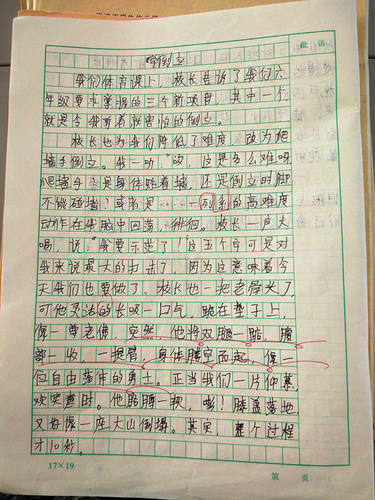 倒立
我们体育课上，校长告诉了我们六
年级要求掌握的三个新项目，其中一个
就是令我听着就害怕的倒立。
校长也为我们降低了难度，改为爬
墙手倒立。我一听"哎，这是多么难呀
爬墙手 是身体贴着墙，还是倒立时脚
不能碰墙？或者是……一系列的高难度
动作在我脑中回荡，徘徊。校长一声大
喝，说："我要示范了！这五个字可是对
我来说最大的打击了，因为这意味着今
天我们也要做了。校长也一把老骨头了，
可他灵活的长吸一口气，跪在垫子上，
像一尊老佛，突然，他将双腿一 ，腹
部一收，一提臀，身体腾空而起，像一
位自由落体的勇士。正当我们一片仰慕
欢笑声时。他胳膊一软，嘭！膝盖落地，
又好像一座大山倒塌。其实，整个过程
才10秒。
17×19
第 页
批 语